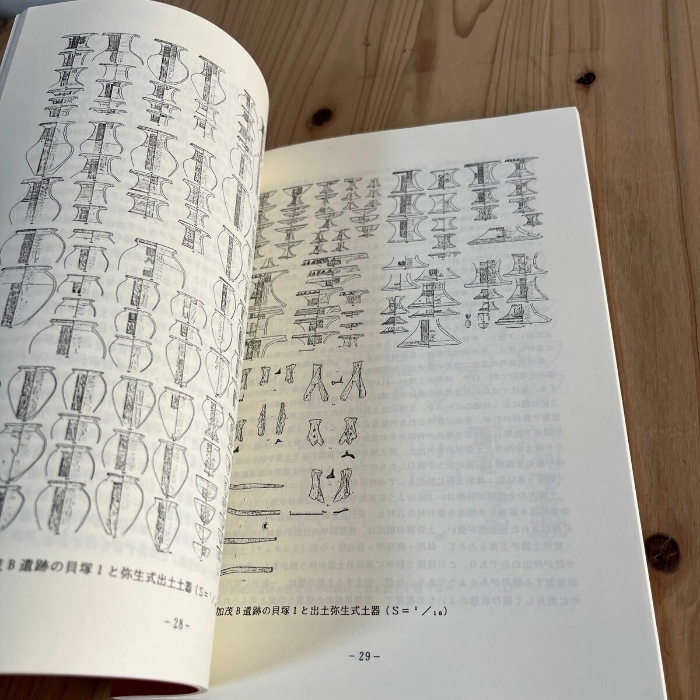 B遺跡の貝塚1と弥生式出土土器（S=
-28-
加茂B遺跡の貝塚1と出土弥生式土器（S＝¹／₁₆）
-29-